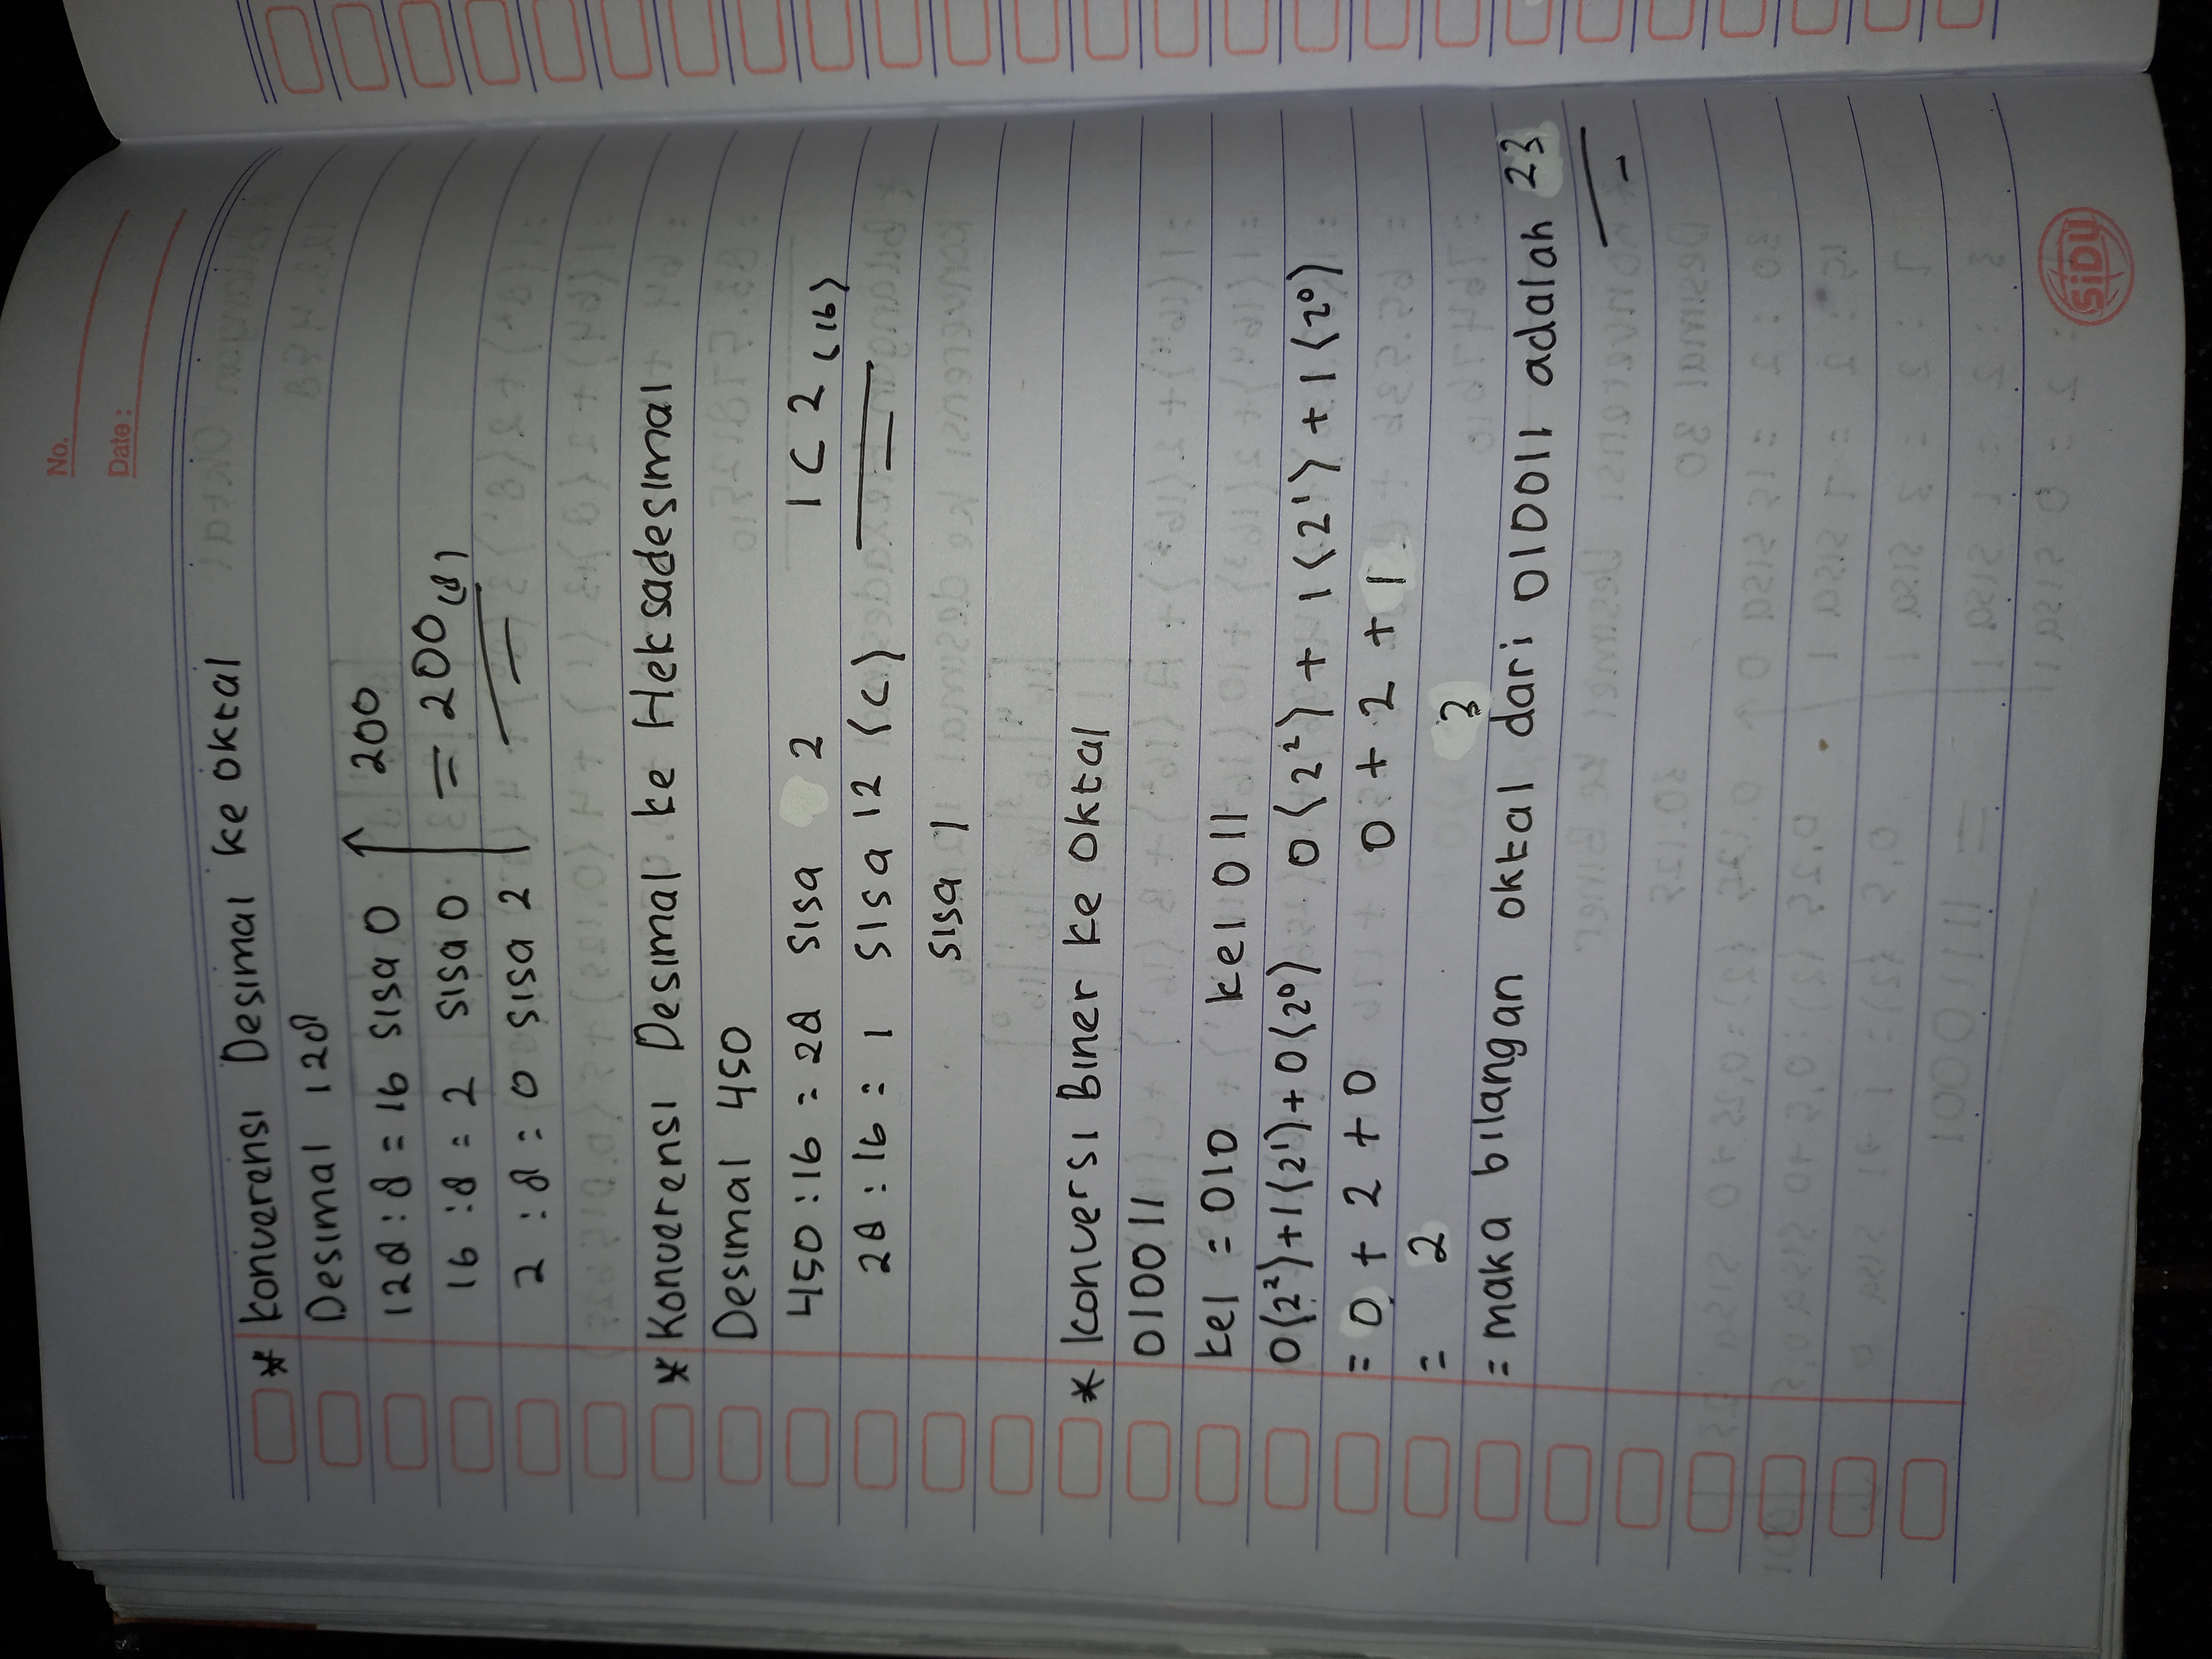 No.
Date :
* Konverensi Desimal ke oktal
Desimal 128
128 : 8 = 16 sisa 0 200
16 : 8 = 2 sisa 0 = 200 (8)
2 : 8 = 0 sisa 2
* Konverensi Desimal ke Heksadesimal
Desimal 450
450 : 16 = 28 sisa 2 1 C 2 (16)
28 : 16 = 1 sisa 12 (c)
sisa 1
* Konversi Biner ke Oktal
010011
kel = 010 kel 011
0(2²)+1(2¹)+0(2⁰) 0(2²) + 1(2¹) + 1(2⁰)
= 0 + 2 + 0 0 + 2 + 1
= 2 3
= maka bilangan oktal dari 010011 adalah 23
SiDU